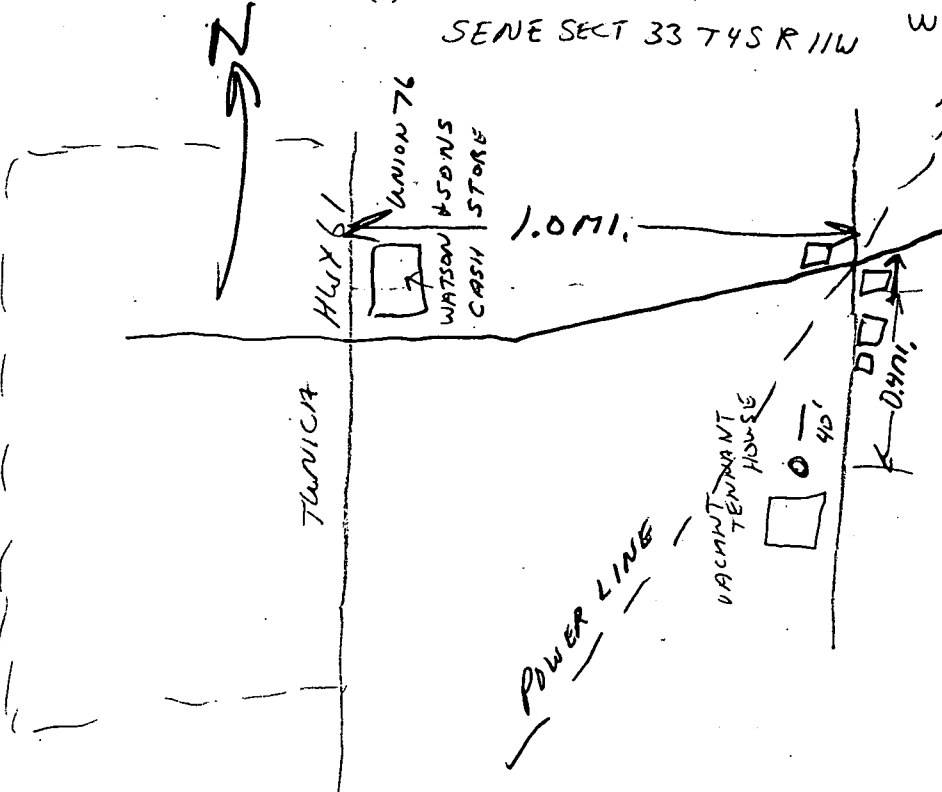 SENE SECT 33 T4S R 11W
W
N
UNION 76
WATSON & SONS
CASH STORE
1.0 MI.
HWY 61
TUNICA
0.4 MI.
40'
VACANT
TENNANT
HOUSE
POWER LINE